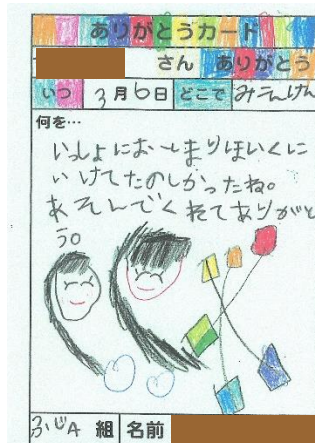 ありがとうカード
さん ありがとう
いつ 3月6日 どこで みこんけん
何を…
いっしょにおとまりほいくに
いけてたのしかったね。
あそんでくれてありがと
う。
ふじA 組 名前